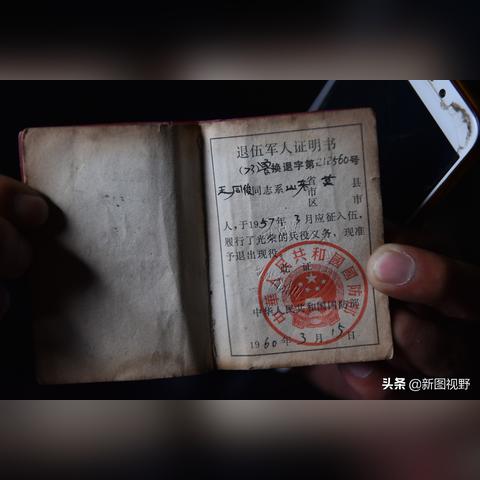 退伍军人证明书
换退字第212560号
王同俊同志系山东省
市
区
县
市
人，于1957年3月应征入伍，
履行了光荣的兵役义务，现准
予退出现役。
此证
中华人民共和国国防部
中华人民共和国国防部
1960年3月15日
头条 @新图视野